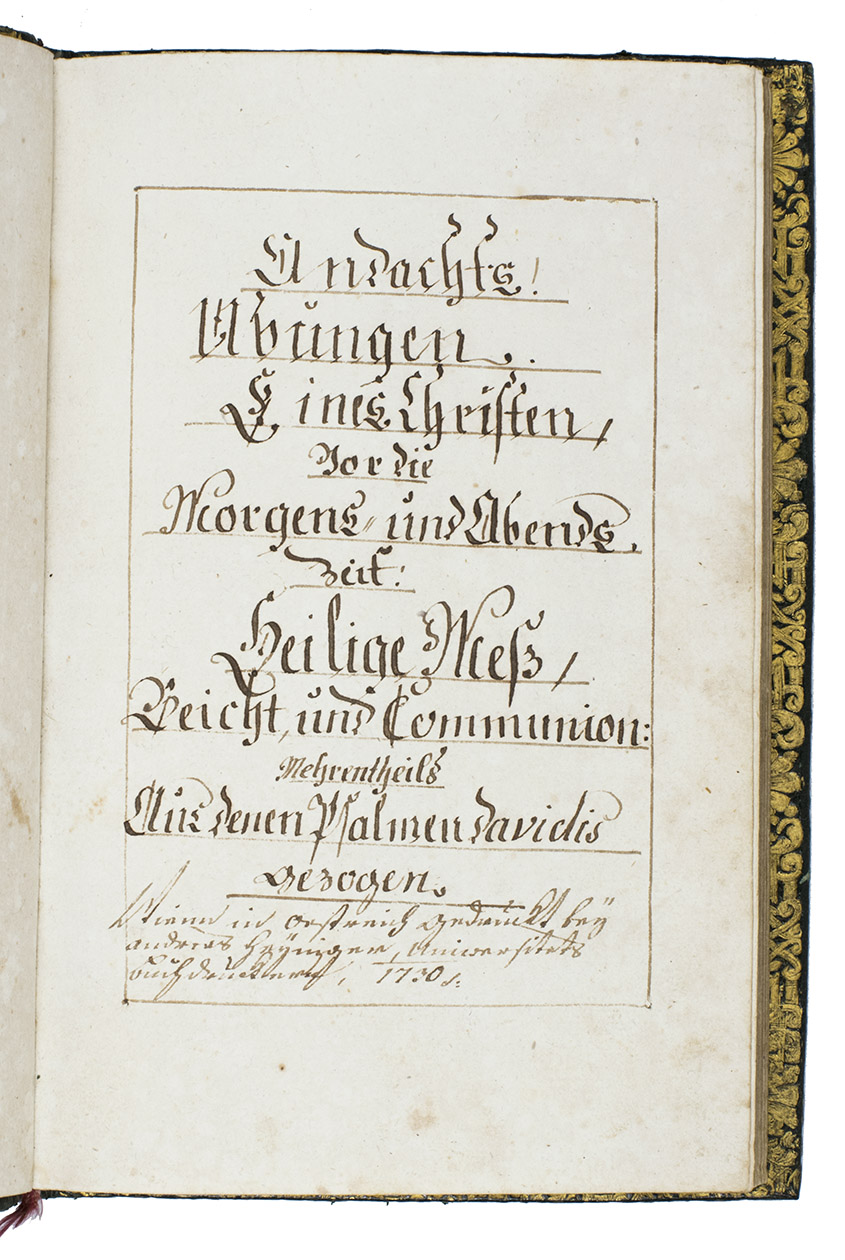 Andachts!
Ubungen.
Eines Christen,
Vor die
Morgens= und Abends.
Zeit:
Heilige Meß,
Beicht, und Communion:
Mehrentheils
Aus denen Psalmen davidis
gezogen.
Wienn in oestreich gedruckt bey
andreas Heyniger, Universitets
buchdruckern, 1730